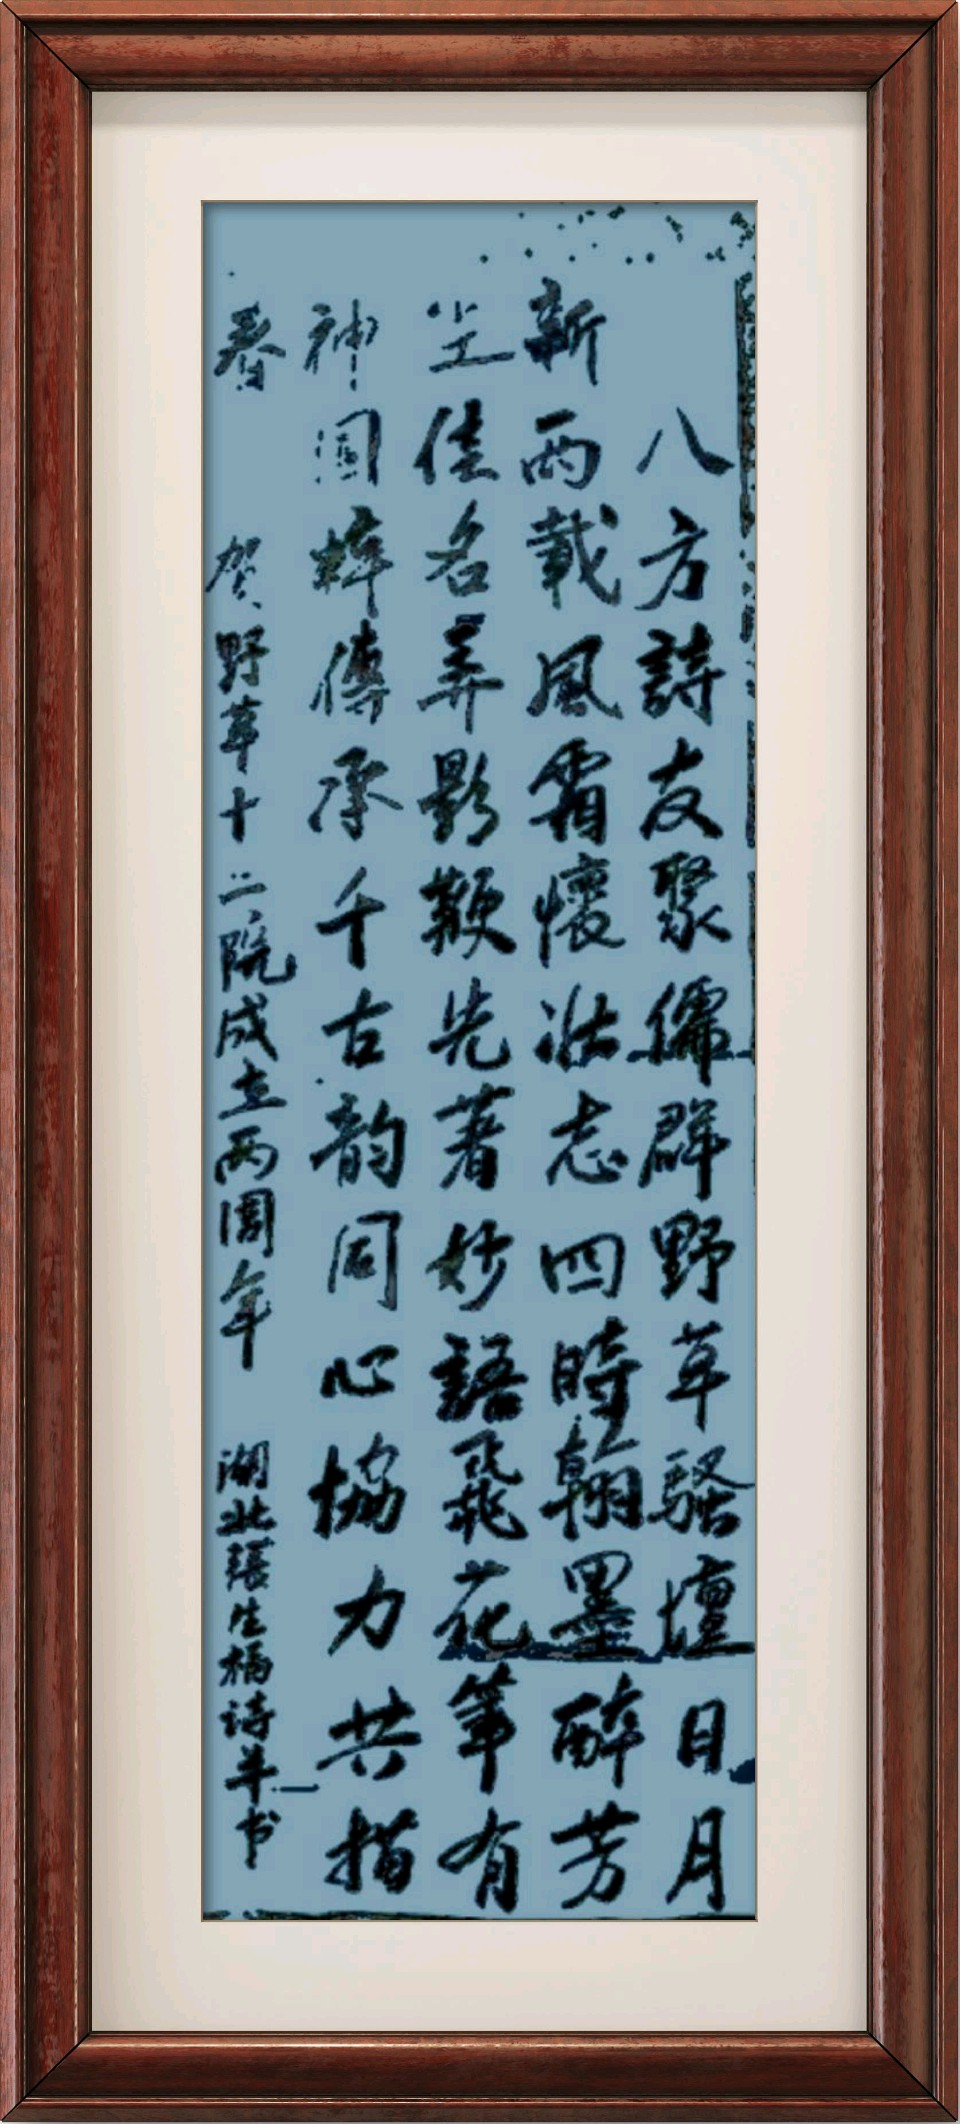 八方詩友聚儒群野草騷壇日月
新两載風霜懷壯志四時翰墨醉芳
尘佳名弄影鞭先著妙語飛花筆有
神国粹傳承千古韵同心協力共描
春 贺野草十二院成立两周年 湖北張生诗并书